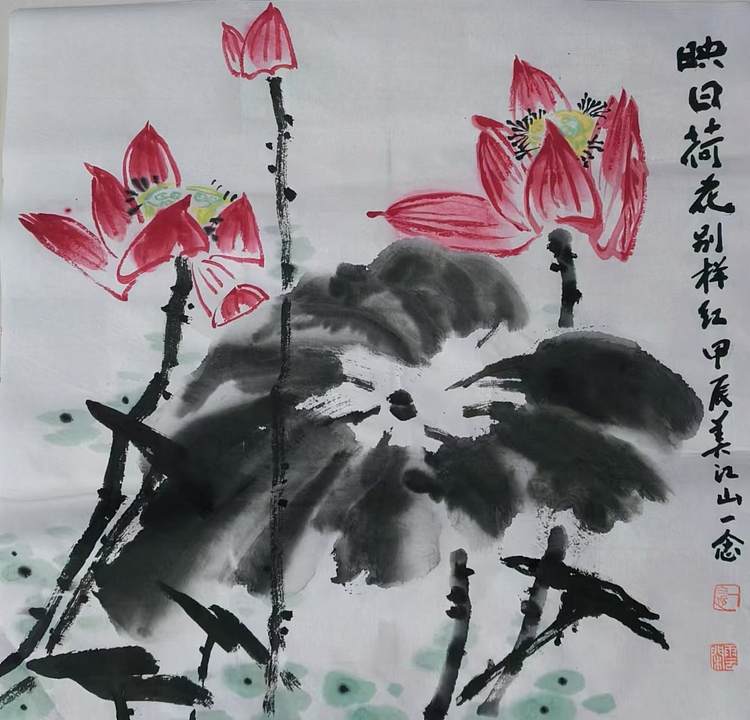 映日荷花别样红甲辰姜江山一念